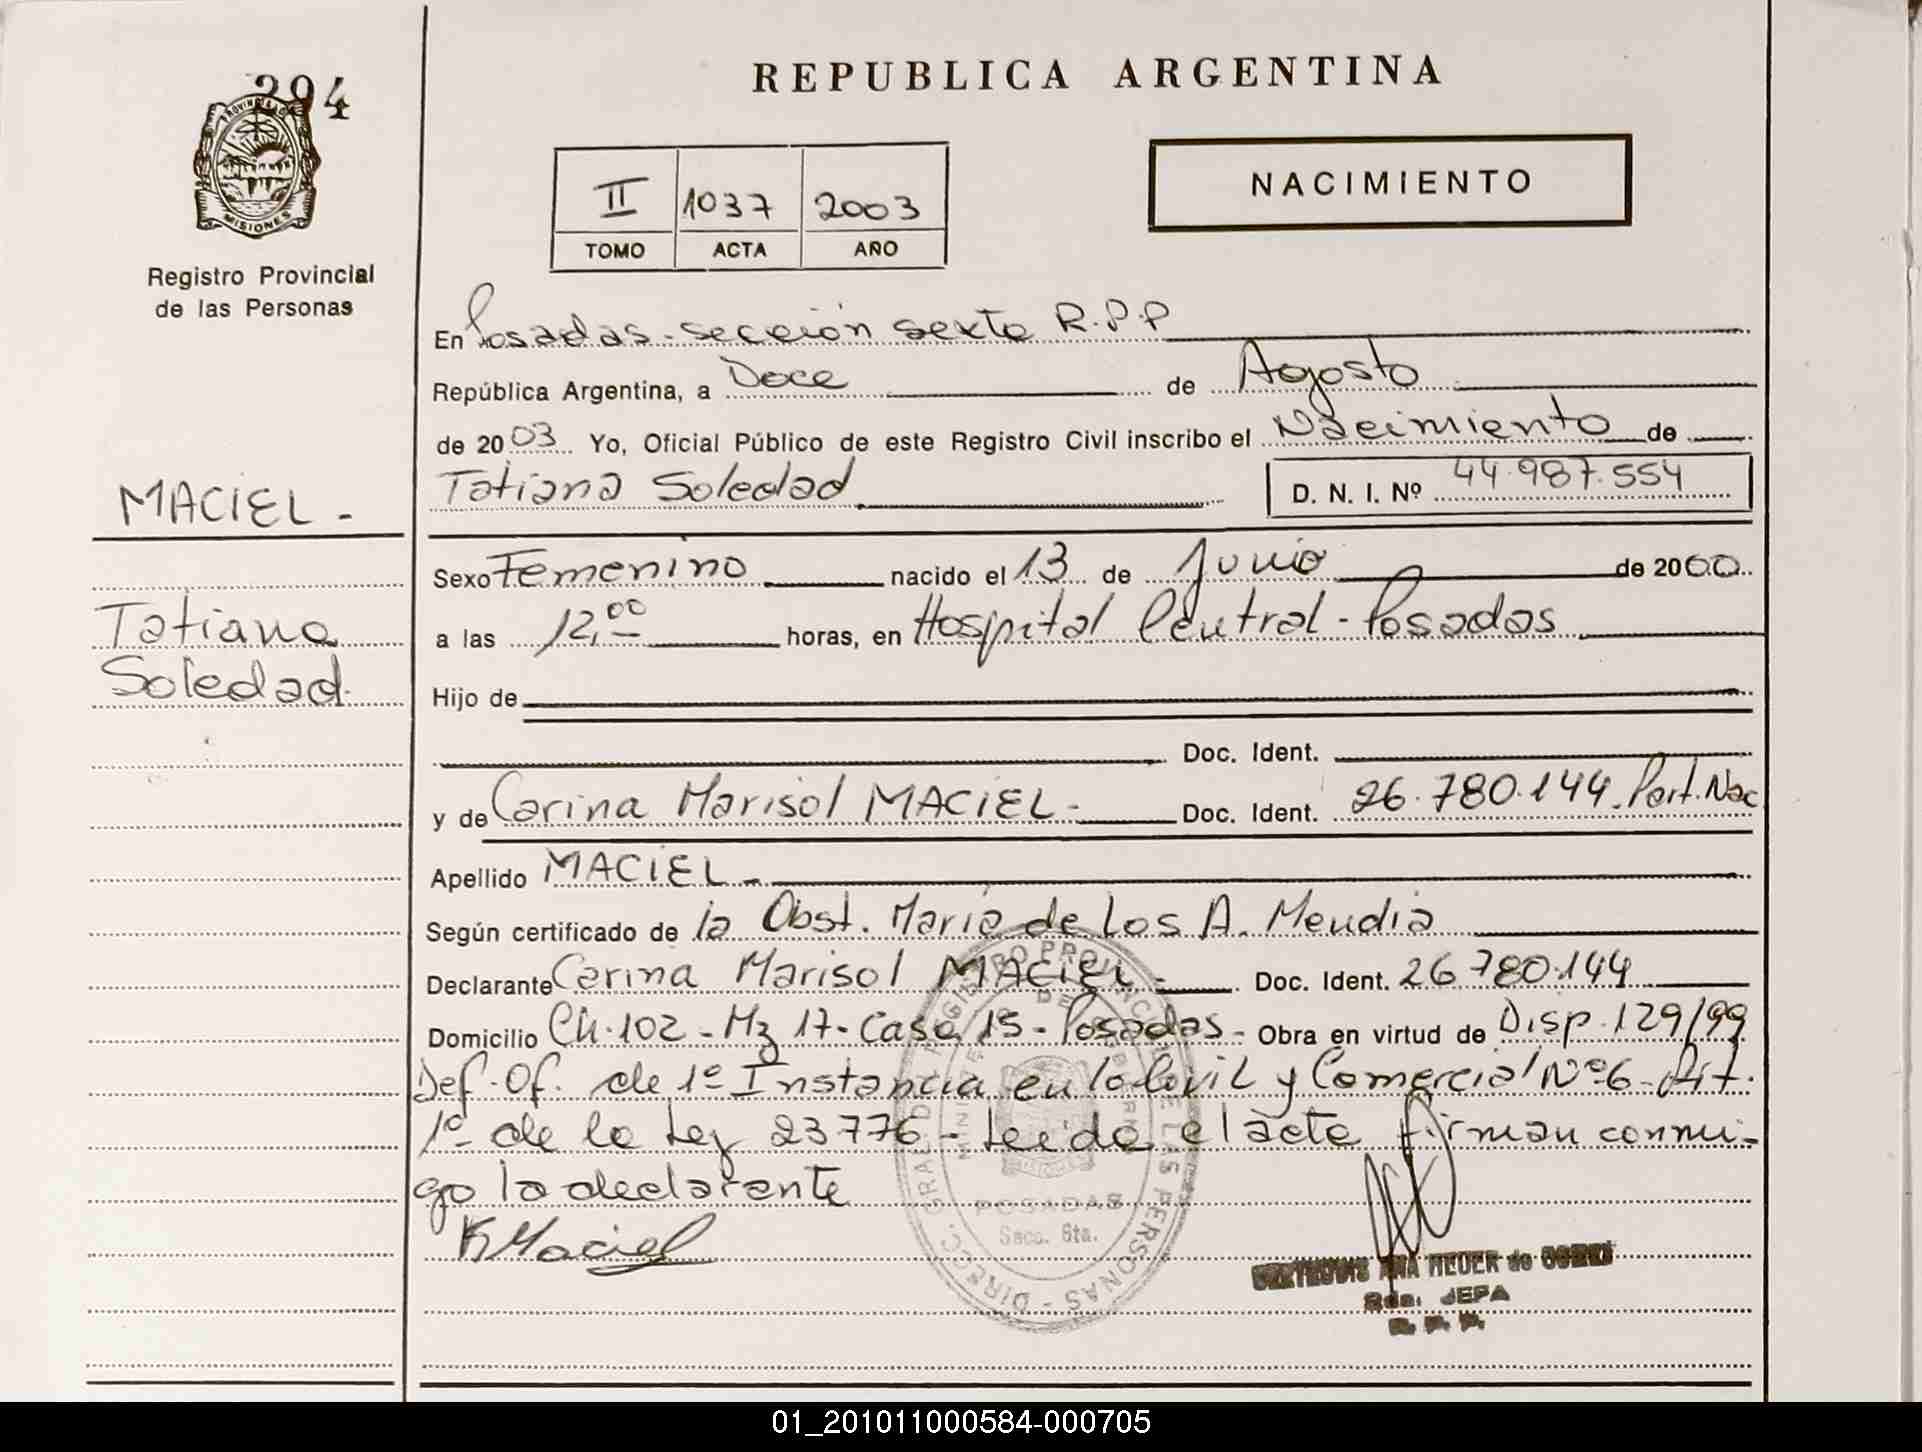 294
REPUBLICA ARGENTINA
PROVINCIA DE
MISIONES
Registro Provincial
de las Personas
II 1037 2003
TOMO ACTA AÑO
NACIMIENTO
En Posadas - sección sexta R.P.P
República Argentina, a Doce de Agosto
de 2003 Yo, Oficial Público de este Registro Civil inscribo el Nacimiento de
Tatiana Soledad D. N. I. Nº 44.987.554
MACIEL -
Tatiana
Soledad.
Sexo Femenino nacido el 13 de Junio de 2000
a las 12,00 horas, en Hospital Central - Posadas
Hijo de
Doc. Ident.
y de Carina Marisol MACIEL - Doc. Ident. 26.780.144. Part. Nac
Apellido MACIEL -
Según certificado de la Obst. Maria de Los A. Mendia
Declarante Carina Marisol MACIEL - Doc. Ident. 26 780.144
Domicilio Ch. 102 - Mz 17 - Casa 15 - Posadas - Obra en virtud de Disp. 129/99
Def. Of. de 1º Instancia en lo Civil y Comercial Nº 6 - Art.
1º de la Ley 23776 - Leida el acta firman conmi-
go la declarante
K Maciel
DIREC. GRAL. DEL REGISTRO PROVINCIAL DE LAS PERSONAS
MINISTERIO DE GOBIERNO
POSADAS
Secc. 6ta.
ANA HEUER de
2da. JEFA
R. P. P.
01_201011000584-000705